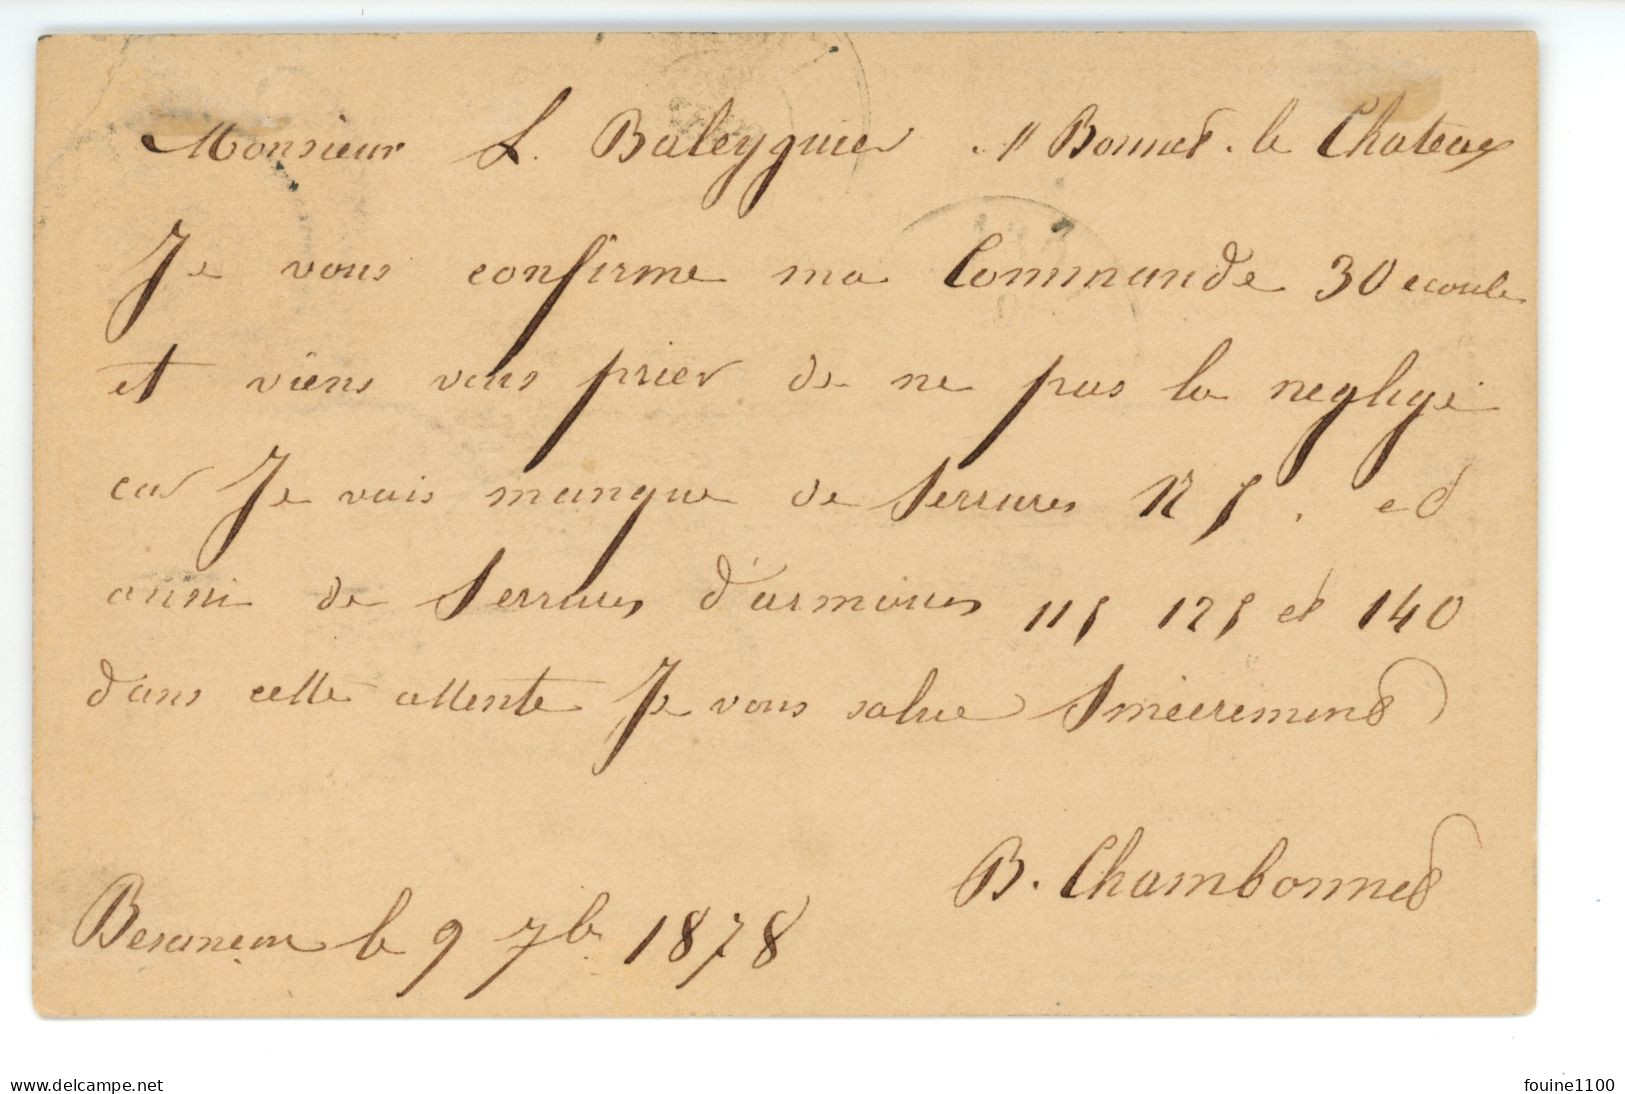 Monsieur L. Baleyguier St Bonnet. le Chateau
Je vous confirme ma Commande 30 ecoule
et viens vous prier de ne pas la negligé
car Je vais manque de Serrures 125. et
aussi de Serrures d'armoires 115 125 et 140
dans cette attente Je vous salue Sincerement
B. Chambonnet
Besançon le 9 7b 1878
www.delcampe.net
fouine1100